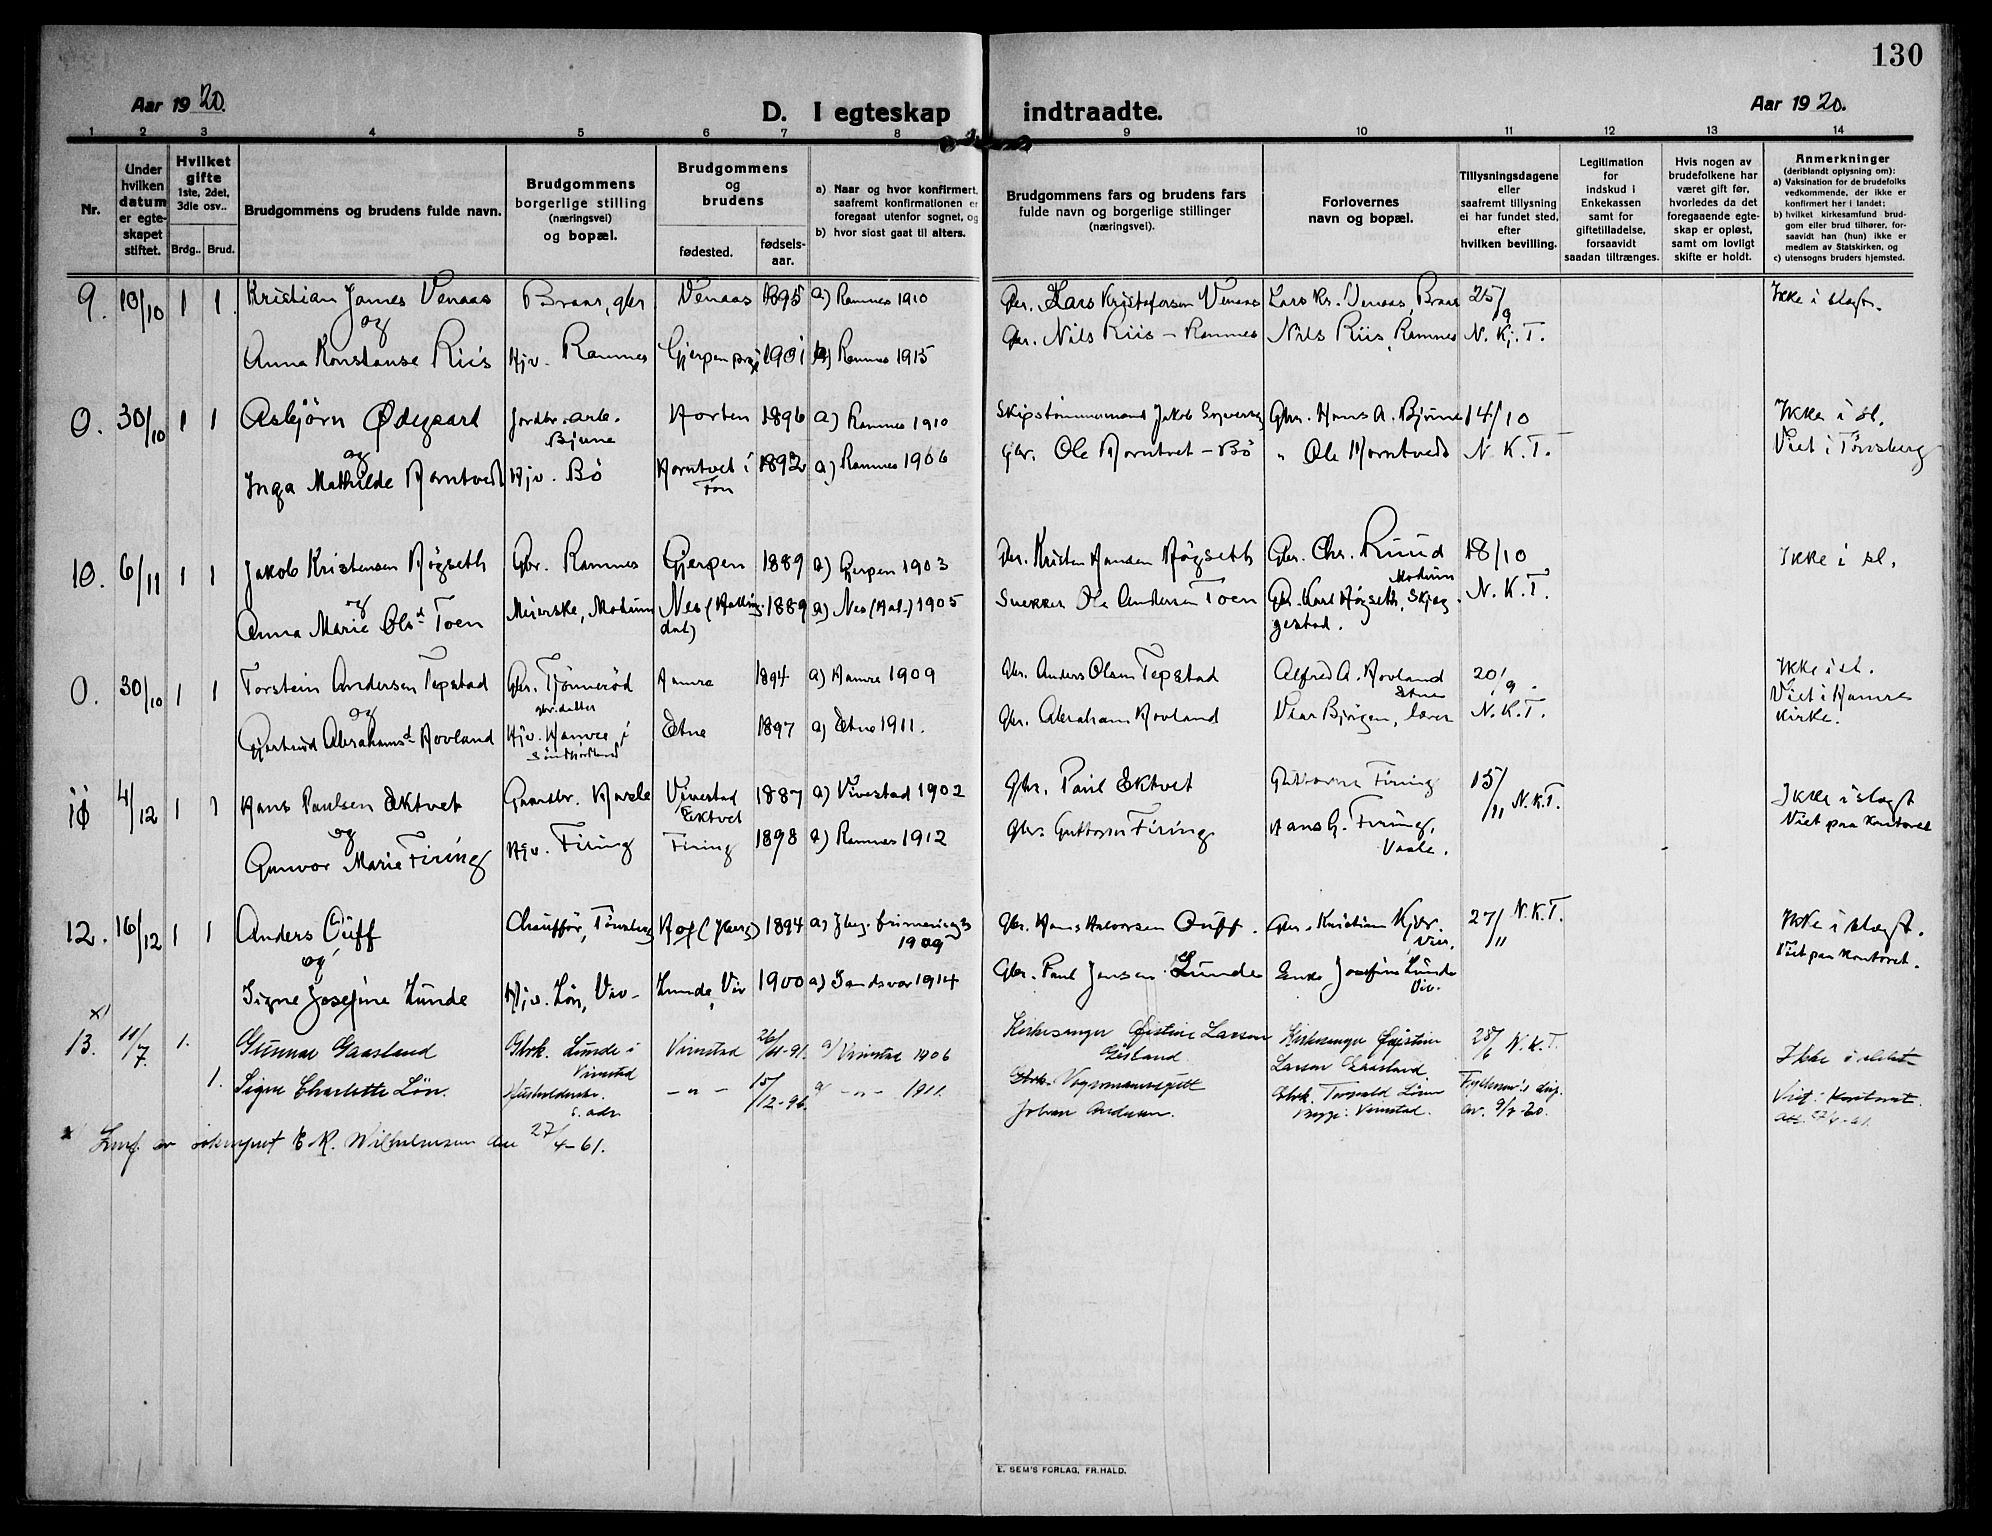 130
Aar 1920.
D. I egteskap indtraadte.
Aar 1920.
1 2 3 4 5 6 7 8 9 10 11 12 13 14
Nr.
Under hvilken datum er egteskapet stiftet.
Hvilket gifte 1ste, 2det, 3die osv..
Brdg.. Brud.
Brudgommens og brudens fulde navn.
Brudgommens borgerlige stilling (næringsvei) og bopæl.
Brudgommens og brudens
fødested. fødselsaar.
a) Naar og hvor konfirmert, saafremt konfirmationen er foregaat utenfor sognet, og
b) hvor sidst gaat til alters.
Brudgommens fars og brudens fars fulde navn og borgerlige stillinger (næringsvei).
Forlovernes navn og bopæl.
Tillysningsdagene eller saafremt tillysning ei har fundet sted, efter hvilken bevilling.
Legitimation for indskud i Enkekassen samt for giftetilladelse, forsaavidt saadan tiltrænges.
Hvis nogen av brudefolkene har været gift før, hvorledes da det foregaaende egteskap er opløst, samt om lovligt skifte er holdt.
Anmerkninger (deriblandt oplysning om):
a) Vaksination for de brudefolks vedkommende, der ikke er konfirmert her i landet;
b) hvilket kirkesamfund brudgom eller brud tilhører, forsaavidt han (hun) ikke er medlem av Statskirken, og
c) utensogns bruders hjemsted.
9. 10/10 1 1 Kristian James Venaas Braar, gbr Venaas 1895 a) Ramnes 1910 Gbr. Lars Kristofersen Venaas Lars Kr. Venaas, Braar 25/9 Ikke i slegt.
og
Anna Konstanse Riis Hjv. Ramnes Gjerpen 1901 a) Ramnes 1915 Gbr. Nils Riis - Ramnes Nils Riis, Ramnes N. K. T.
0. 30/10 1 1 Asbjörn Ødegaard Jordbr. arb. Bjune Horten 1896 a) Ramnes 1910 Skipstömmermand Jakob Gbr. Hans A. Bjune 14/10 Ikke i sl.
og
Inga Mathilde Horntvedt Hjv. Bö Horntvet i Fon 1892 a) Ramnes 1906 Gbr. Ole Horntvet - Bö " Ole Horntvedt N. K. T. Viet i Tönsberg
10. 6/11 1 1 Jakob Kristensen Högseth Gbr. Ramnes Gjerpen 1889 a) Gjerpen 1903 Kristen Hansen Högseth Gbr. Chr. Ruud Modum 18/10 Ikke i sl.
og
Anna Marie Olsd Toen Meierske, Modum Nes (Hallingdal) 1889 a) Nes (Hal.) 1905 Snekker Ole Andersen Toen Gbr. Karl Högseth, Skjeggestad. N. K. T.
0. 30/10 1 1 Torstein Andersen Tepstad Gbr. Tjönneröd Hamre 1894 a) Hamre 1909 Gbr. Anders Olsen Tepstad Alfred A. Hovland Etne 20/9. Ikke i sl.
og gbr. datter Viet i Hamre kirke.
Gjertrud Abrahamsd Hovland Hjv. Hamre i Etne 1897 a) Etne 1911. Gbr. Abraham Hovland lærer N. K. T.
11 4/12 1 1 Hans Paulsen Ektvet Gaardbr. Vivestad Ektvet 1887 a) Vivestad 1902 Gbr. Paul Ektvet Guttorm Firing 15/11 N.K.T. Ikke i slegt
og Viet paa kontoret
Gunvor Marie Firing Hjv. Firing Firing 1898 a) Ramnes 1912 Gbr. Guttorm Firing Hans G. Firing, Vaale.
12. 16/12 1 1 Anders Ouff Chauffør, Tönsberg Hof (Jberg) 1894 a) 1909 Gbr. Hans Halvorsen Ouff. Gbr. Kristian Kjær Viv. 27/11 N.K.T. Ikke i slegt.
og Viet paa kontoret.
Signe Josefine Lunde Hjv. Lön, Viv. Lunde, Viv 1900 a) Sandsvær 1914 Gbr. Paul Jensen Lunde Enke Josefine Lunde Viv.
x)
13. 11/7. 1. Gunnar Gaasland Gbrk. Lunde i Vivestad Vivestad 26/11-91. a) Vivestad 1906 Kirkesanger Øistein Larsen Gaasland Kirkesanger Øistein Larsen Gaasland 25/6 N.K.T. Ikke i slekt
1. Signe Charlotte Lön. Husholderske s. adr. -"- 15/12-96. a) -"- 1911. Vognmann Johan Andersen. Gbrk. Torvald Lönn Vivestad. Fylkesm's disp. av. 9/7-20. Viet i kontoret.
27/4-61.
x) Innf. av sokneprest E. R. Wilhelmsen den 27/4-61.
E. SEM'S FORLAG, FR.HALD.